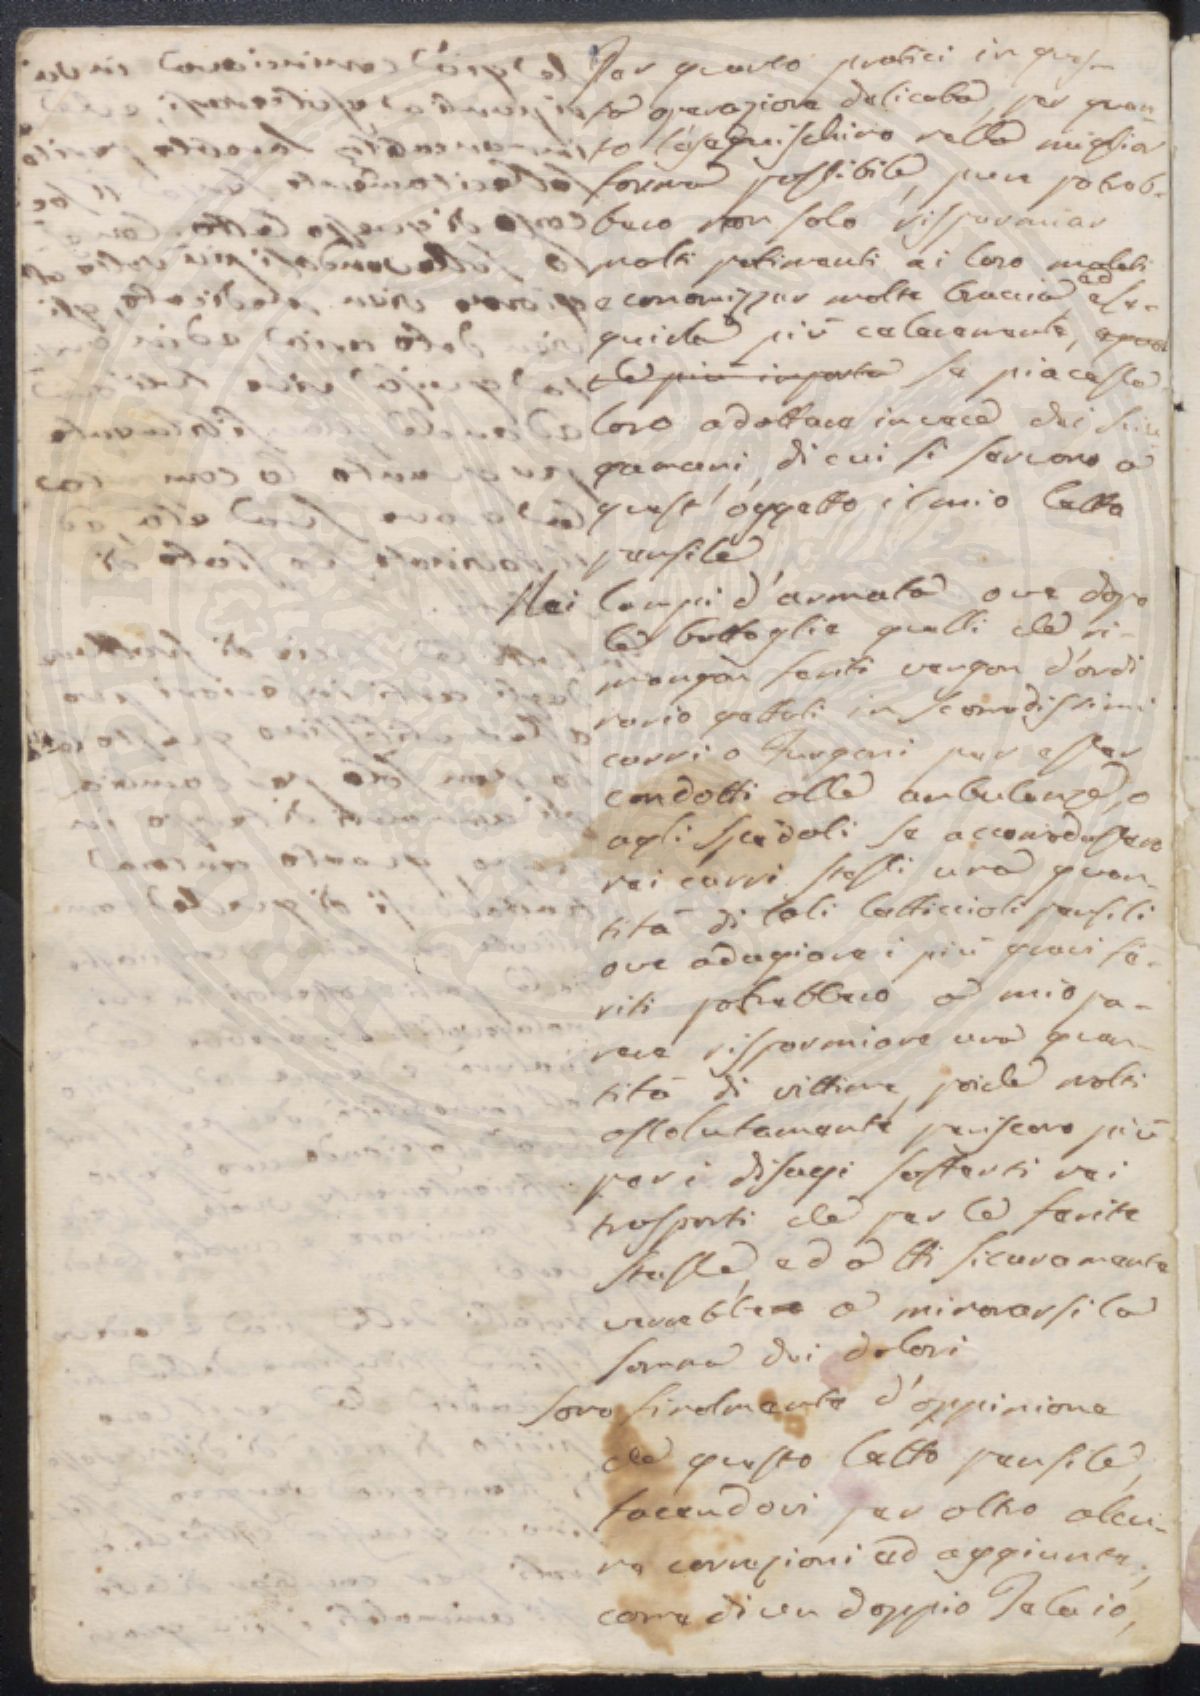 Per quanto pratici in ques-
ta operazione delicata, per quan
to l'eseguischino nella miglior
forma possibile, pure potreb-
bero non solo risparmiar
molti patimenti ai loro malati
economizzar molte braccia ed ese-
guirla più celeremente,
che più importa se piacesse
loro adottare invece dei sciu
gamani, di cui si servono a
quest'oggetto il mio letto
pensile
Nei Campi d'armata ove dopo
le battaglie quelli che ri-
mangon feriti vengon d'ordi
nario gettati in scomodissimi
carri o Furgoni per esser
condotti alle ambulanze, o
agli Spedali se accomodassero
nei carri stessi una quan-
tità di tali letticcioli pensili
ove adagiare i più gravi fe-
riti potrebbero a mio pa-
rere risparmiare una quan-
tità di vittime, poiche molti
assolutamente periscono più
per i disagi sofferti nei
trasporti che per le ferite
stesse, ed a tti sicuramente
verrebbe a minorarsi la
somma dei dolori
Sono finalmente d'oppinione
che questo letto pensile,
facendovi per altro alcu-
ne correzioni ed aggiunte,
come di un doppio Telaio,